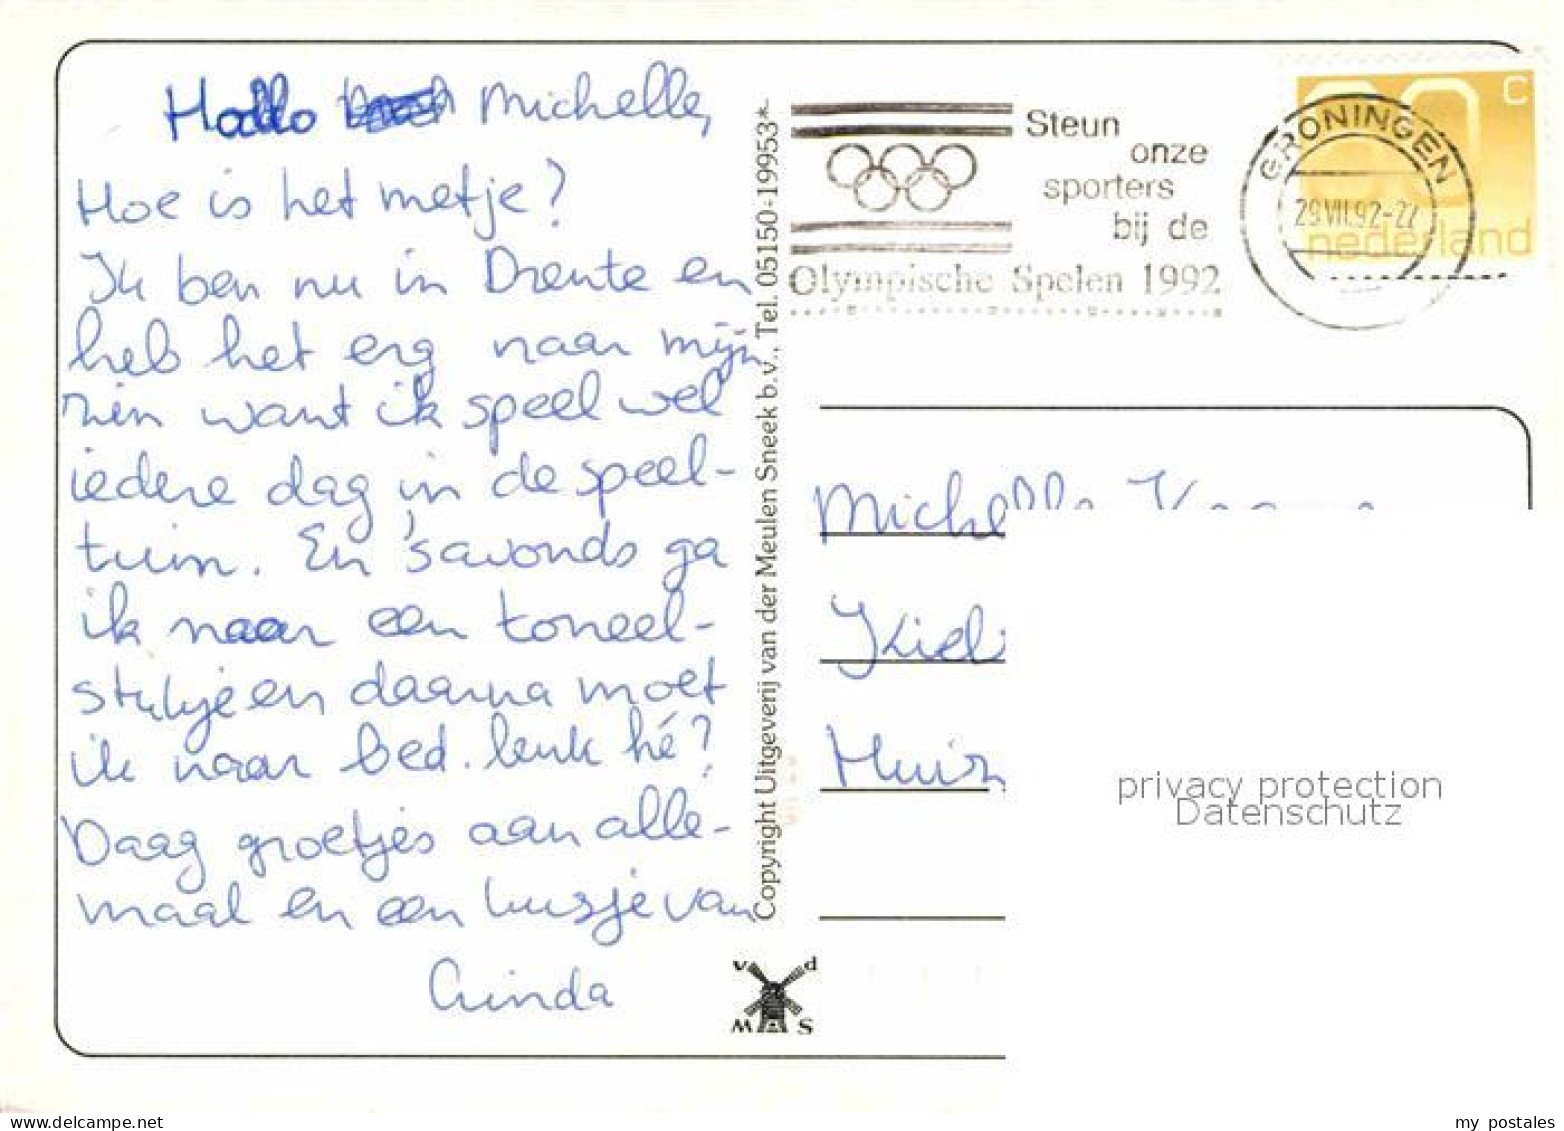 Hallo Michelle,
Hoe is het metje?
Ik ben nu in Drente en
heb het erg naar mijn
zin want ik speel wel
iedere dag in de speel-
tuin. En 's avonds ga
ik naar een toneel-
stukje en daarna moet
ik naar bed. leuk hé?
Daag groetjes aan alle-
maal en een kusje van
Copyright Uitgeverij van der Meulen Sneek b.v., Tel. 05150-19953*
v d
M S
Steun
onze
sporters
bij de
Olympische Spelen 1992
GRONINGEN
29.VII.92-22
c
nederland
Michelle
privacy protection
Datenschutz
my postales